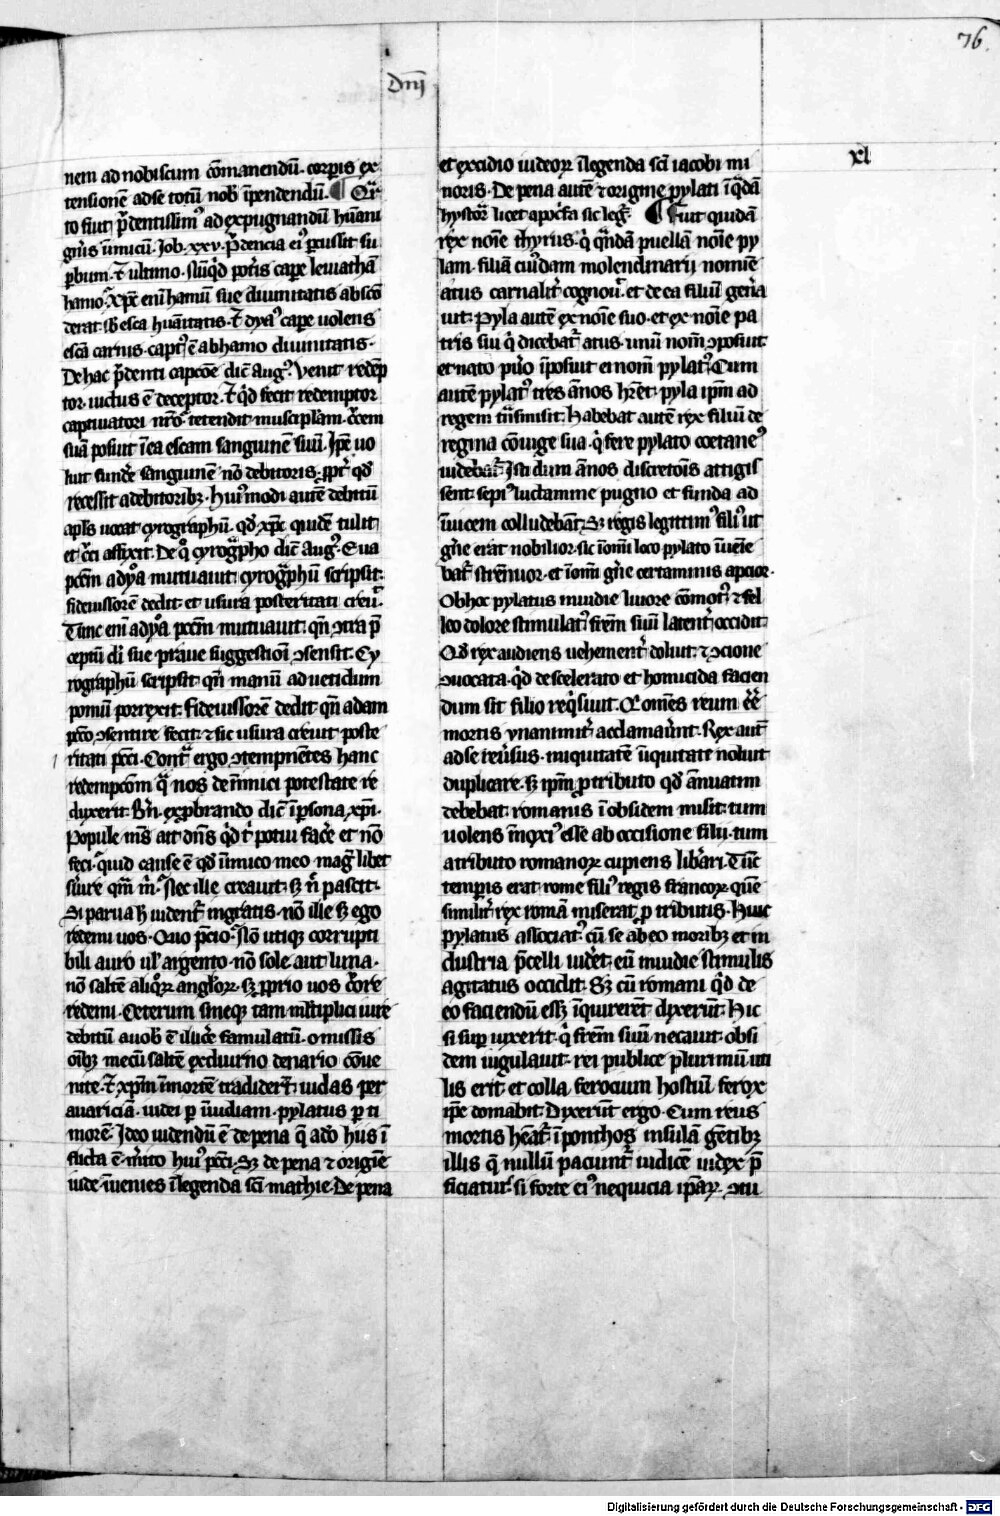 76.
Dnj
xl
nem ad nobiscum cōmanendū. corpris ex
tensionē ad se totū nob īpendendū. ¶ Qr̄
to fiut prdentissimꝰ ad expugnandū hūani
gn̄is inimicū. Job. xxv. prdencia eiꝰ pcussit su
pbum. ⁊ ultimo. nūqͥd potis cape leuiathā
hamo. xpc̄ eni hamū sue diuinitatis abscō
derat sb esca hūanitatis. ⁊ dyaꝰ cape uolens
escā carnis. captꝰ ē ab hamo diuinitatis.
De hac prdenti capcōe dic̄ augꝰ. Venit redēp
tor. uictus ē deceptor. ⁊ qͥd fecit redemptor
captiuatori nrō. tetendit muscipulam. crcem
suā posuit i ea escam sanguinē suū. Ipe uo
luit fundere sanguinē nō debitoris. ppt qd
recessit a debitoribꝫ. Huiꝰ modi autē debitū
apls uocat cyrographū. qd xpc̄ quidē tulit
et crci affixit. De qͦ cyrogͣpho dic̄ augꝰ. Eua
pctm a dyaͦ mutuauit. cyrogͣphū scripsit.
fideiussorē dedit. et usura posteritati creuͭ.
Tunc eni a dyaͦ pctm mutuauit. qn̄ ↄtra p̄
ceptū di sue praue suggestioni ↄsensit. Cy
rographū scripsit qn̄ manū ad uetidum
pomū porrexit. Fideiussorē dedit qn̄ adam
pctō ↄsentire fecit. ⁊ sic usura creuit poste
ritati pcti. Contra ergo ↄtempnētes hanc
redempcōm qͣ nos de inimici potestate re
duxerit. Bn̄. exprobrando dic̄ i psona xpi.
Popule ms̄ ait dn̄s qͥd tͥ potui face et nō
feci. quid cause ē qd inimico meo magis libet
seruire qm̄ m. Nec ille creauit. sꝫ n pascit.
Si parua h uident̄ ingratis. nō ille sꝫ ego
redemi uos. Quo pcio. Nō utiqꝫ corrupti
bili auro ul argento. nō sole aut luna.
nō saltē aliqͦꝝ angloꝝ. sꝫ pprio uos crōre
redemi. Ceterum sineqꝫ tam mltiplici iure
debitū a uob ē illicere famulatū. omissis
oībꝫ mecū saltē ex diurno denario cōue
nite. ⁊ xpm in mortē tradiderūt. iudas per
auariciā. iudei p inuidiam. pylatus p ti
morē. Ideo uidendū ē de pena q a dō hiis i
flicta ē. mito huiꝰ pcti. Sꝫ de pena ⁊ origīe
iude inuenies i legenda sci mathie. De pena
et excidio iudeoꝝ i legenda sci iacobi mi
noris. De pena autē ⁊ origine pylati i qͣdā
hystoͬ licet apocfa sic legͬ. ¶ Fuit quidā
rex noīe thyrus. qͥ qͣndā puellā noīe py
lam. filiā cuiꝰdam molendinarij nomīe
atus carnalit cognouͭ. et de ea filiū gena
uit. Pyla autē ex noīe suo. et ex noīe pa
tris sui qͥ dicebatͬ atus. unū nom̄ ↄposuit.
et nato puo iposuit ei nom̄ pylatꝰ. Cum
autē pylatꝰ tres ānos hret. pyla ipm ad
regem tnsmisit. Habebat autē rex filiū de
regina cōiuge sua. qͥ fere pylato coetaneꝰ
uidebatͬ. Isti dum ānos discretōis attigis
sent. sepiꝰ luctamine pugno et funda ad
inuicem colludebāt. Sꝫ regis legittimꝰ filiꝰ ut
gn̄e erat nobilior. sic in omi loco pylato inueīe
batͬ strenuor. et in omi gn̄e certaminis apcior.
Ob hoc pylatus inuidie liuore cōmotꝰ ⁊ fel
leo dolore stimulatꝰ frēm suū latent̄ occidit.
Qd rex audiens uehement̄ doluit. ⁊ ↄcione
ↄuocata. qͥd de scelerato et homicida facien
dum sit filio reqͥsiuit. Qͥ omēs reum ēē
mortis vnanimit acclamauͬnt. Rex aut̄
ad se reuersus. iniquitatē iniquitate noluit
duplicare. sꝫ ipm p tributo qd annuatim
debebat. romanis i obsidem misit. tum
uolens innoxiꝰ esse ab occisione filii. tum
a tributo romanoꝝ cupiens libari. Tūc
temporis erat rome filiꝰ regis francoꝝ. quē
similit rex romā miserat p tributis. Huic
pylatus associatꝰ. cū se ab eo moribꝫ et in
dustria pcelli uidet. eū inuidie stimulis
agitatus occidit. Sꝫ cū romani qͥd de
eo faciendū essꝫ inquirerēt. dixerūt. Hic
si supuixerit. qͥ frēm suū necauit. obsi
dem iugulauit. rei publice plurimū uti
lis erit. et colla ferocium hostiū ferox
ipe domabit. Dixerūt ergo. Cum reus
mortis heatͬ. i ponthos insulā gētibꝫ
illis qͥ nullū paciuntͬ iudicē iudex p
ficiatur. si forte eiꝰ nequicia ipaꝝ. ↄtu
Digitalisierung gefördert durch die Deutsche Forschungsgemeinschaft - DFG